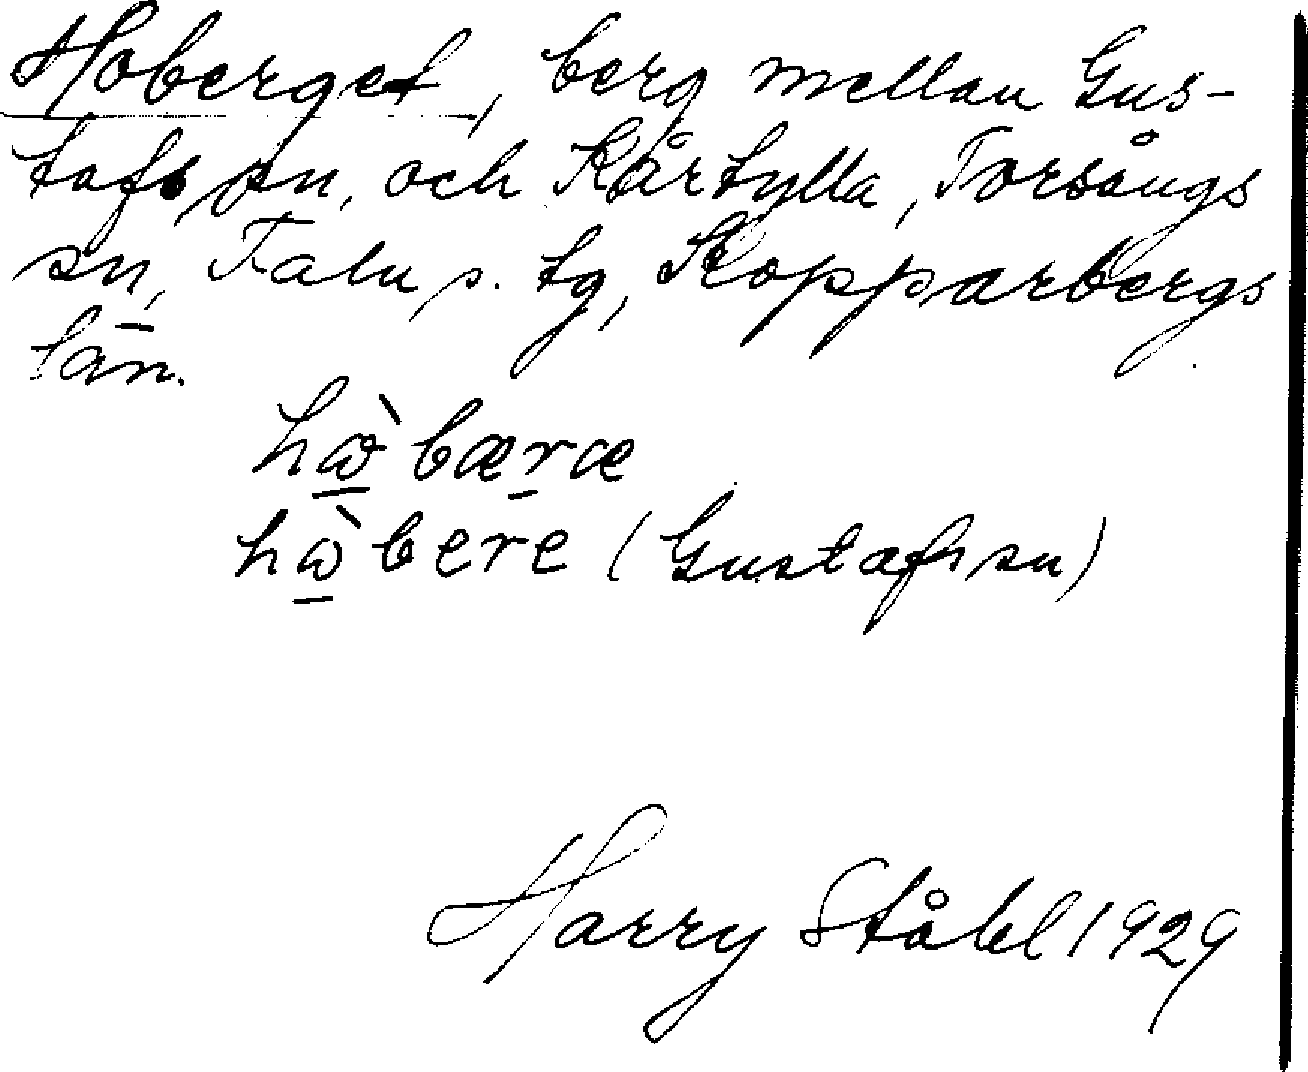 Hoberget, berg mellan Gus-
tafs sn, och Kårtylla, Torsångs
sn, Falu s. tg, Kopparbergs
län.
hὼbæræ
hὼbere (Gustafs sn)
Harry Ståhl 1929